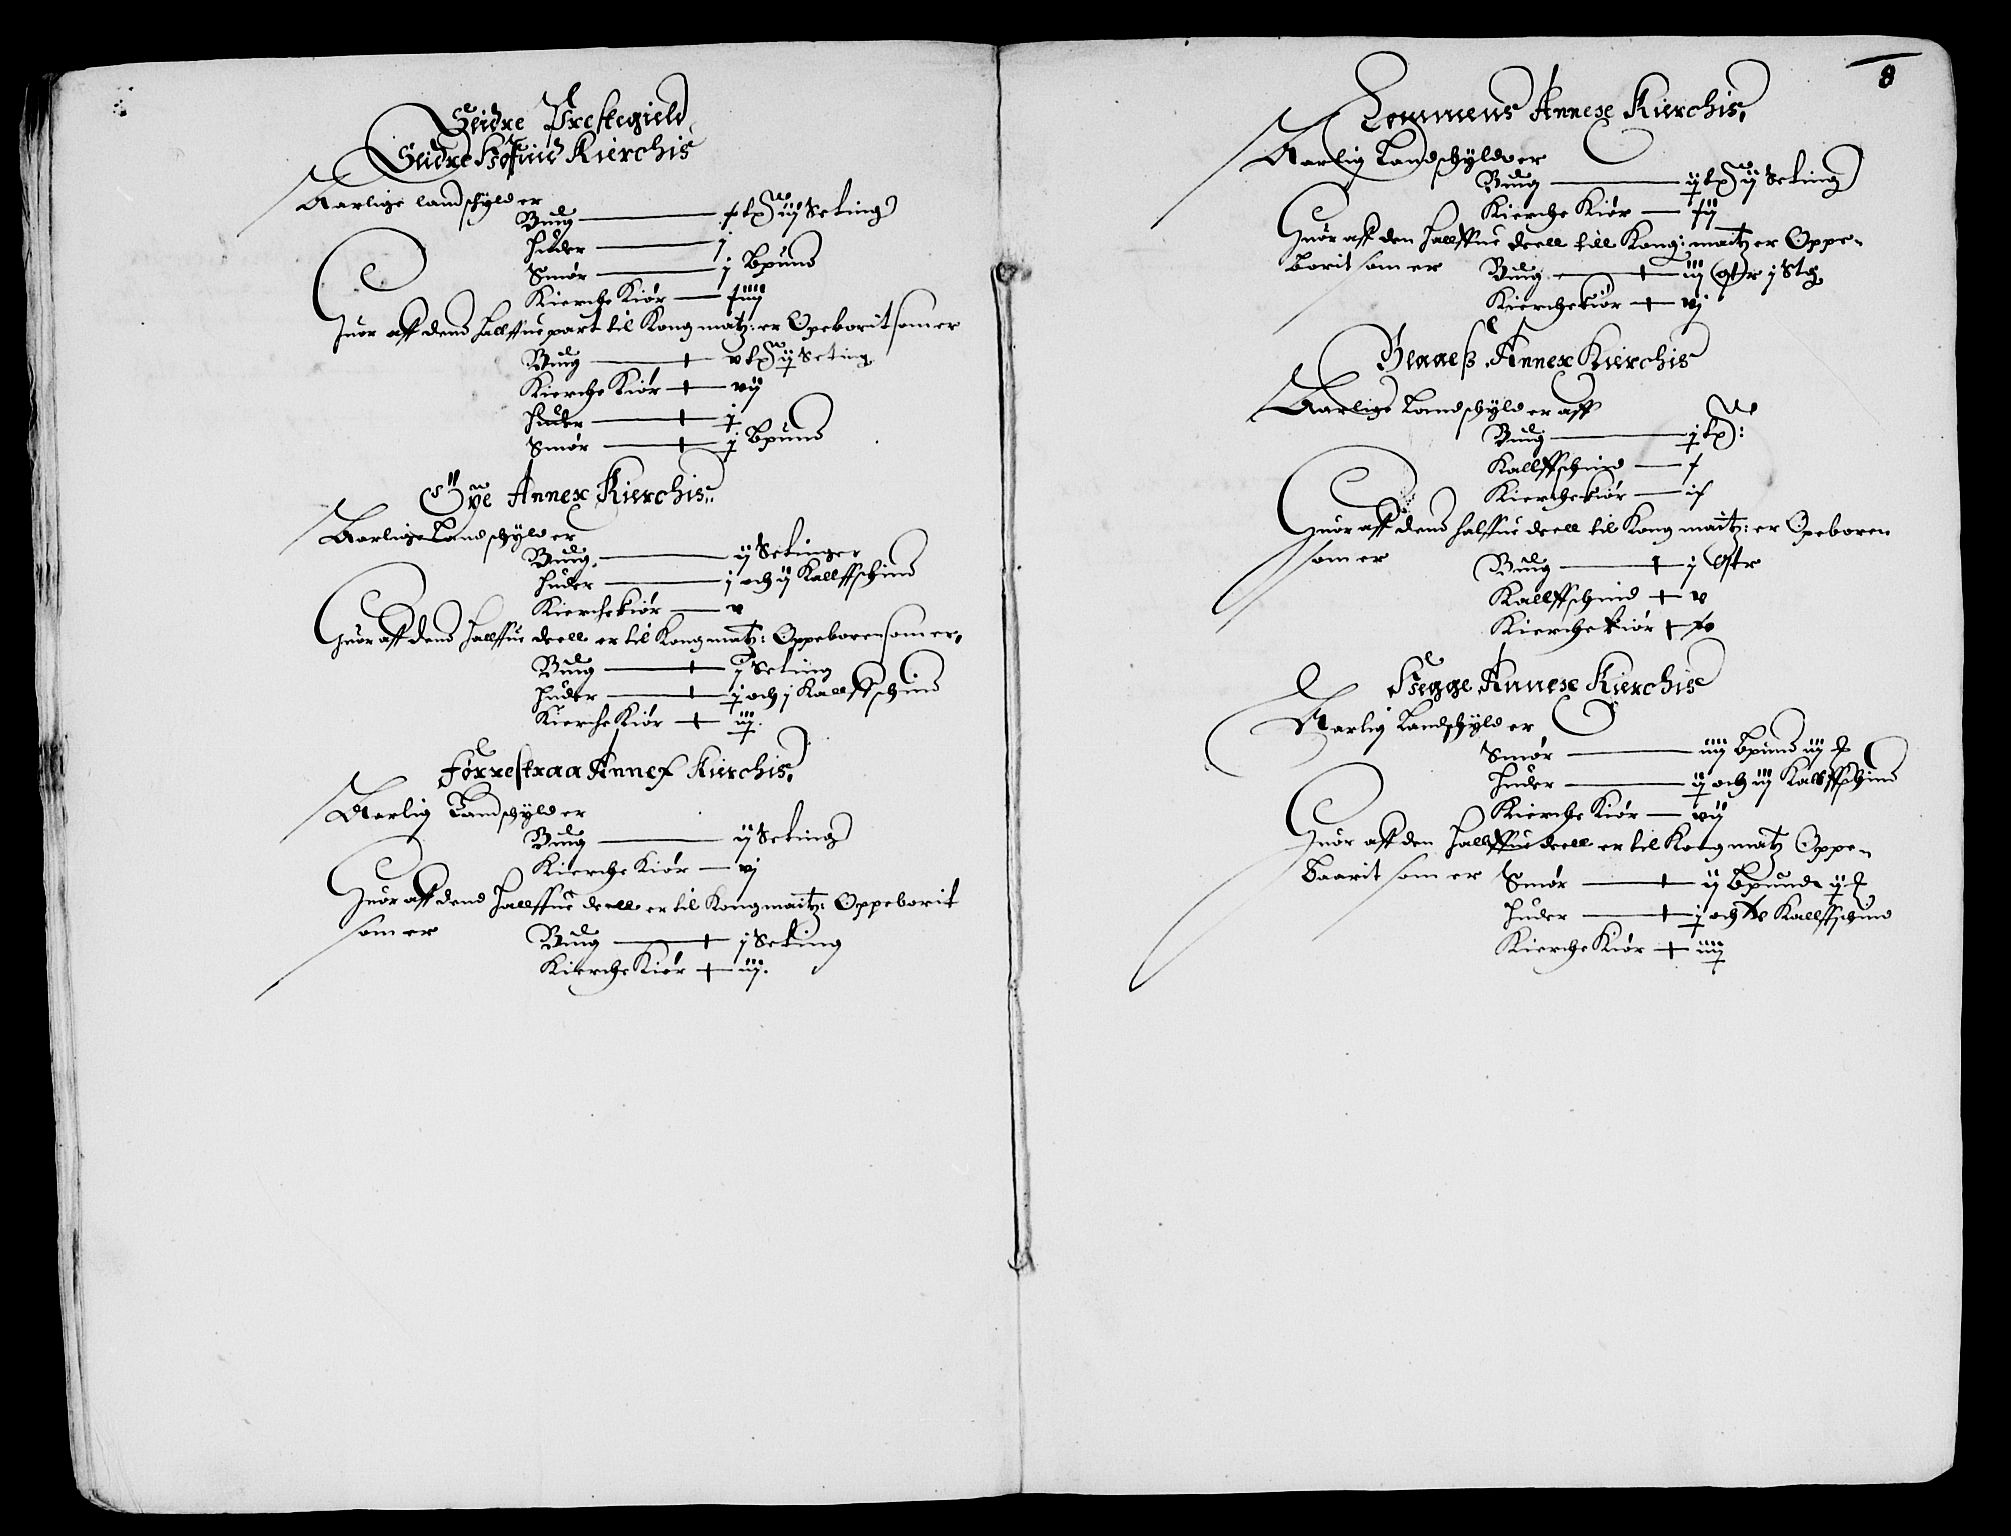 Slidre Prestegield
Slidre Hoffuid Kierchis
Aarlige landschyld er
Biug — x tp iij Seting
Huder — j
Smør — j Bpund
Kierche Kiør — xiiij
Huor aff dend halffue part til Kong matz: er Opeborit som er
Biug — v tp ij Seting
Kierche Kiør — vij
Huder — j
Smør — j Bpund
Øye Annex Kierchis
Aarlige Landschyld er
Biug — ij Setinger
Huder — j och ij Kallffschind
Kierchekiør — v
Huor aff dend halffue deell er til Kong matz: Oppeboren som er
Biug — j Seting
Huder — j och j Kallffschind
Kierche Kiør — iij
Hørrestraa Annex Kierchis
Aarlig Landschyld er
Biug — ij Seting
Kierche Kiør — vj
Huor aff dend halffue deell er til Kong maitz: Oppeborit
som er
Biug — j Seting
Kierche Kiør — iij
8
Lommens Annexe Kierchis
Aarlig Landschyld er
Biug — ij tp ij Seting
Kierche Kiør — xij
Huor aff den halffue deell till Kong: maitz er Oppe-
borit som er
Biug — iij qtr j Stg
Kierchekiør — vj
Annex Kierchis
Aarlige Landschyld er aff
Biug — j tp:
Kallffschind — x
Kierchekiør — ix
Huor aff dend halffue deell til Kong maitz: er Opeboren
som er
Biug — j qtr
Kallffschind — v
Kierchekiør —
Hegge Annexe Kierchis
Aarlig Landschyld er
Smør — iiij Bpund iij
Huder — ij och iij Kallffschind
Kierche Kiør — vij
Huor aff den halffue deell er til Kong matz Oppe-
baarit som er
Smør — ij Bpunde ij
Huder — j och Kallffschind
Kierche Kiør — iiij